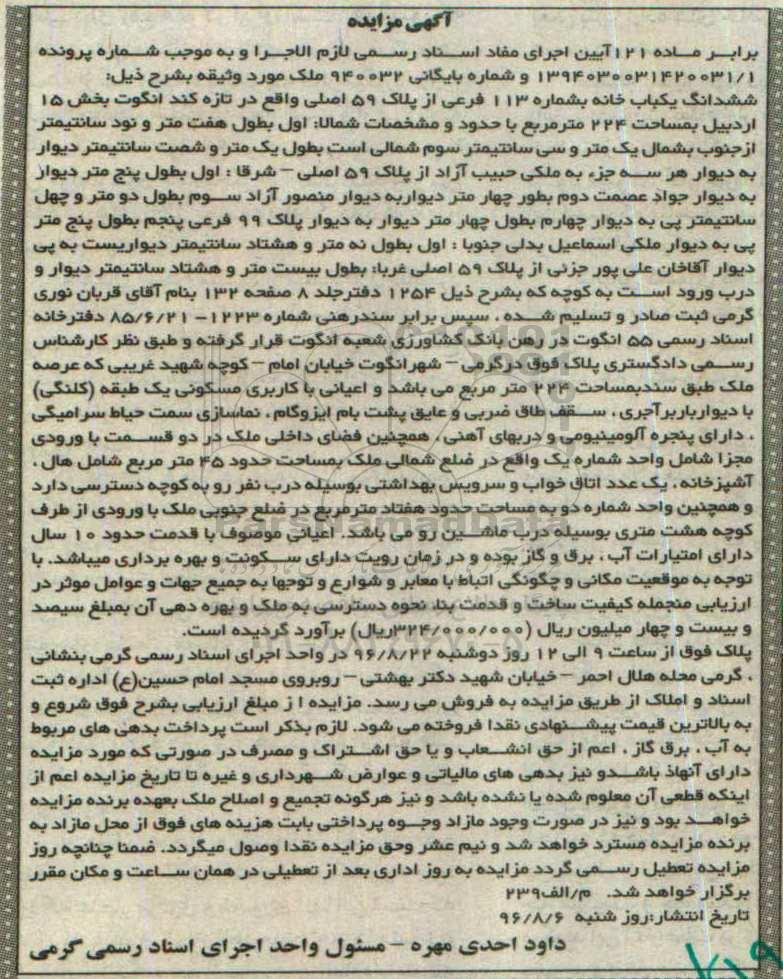 آگهی مزایده
برابر ماده ۱۲۱ آیین اجرای مفاد اسناد رسمی لازم الاجرا و به موجب شماره پرونده
۱۳۹۴۰۳۰۰۳۱۴۲۰۰۰۳۱/۱ و شماره بایگانی ۹۴۰۰۳۲ ملک مورد وثیقه بشرح ذیل:
ششدانگ یکباب خانه بشماره ۱۱۳ فرعی از پلاک ۵۹ اصلی واقع در تازه کند انگوت بخش ۱۵
اردبیل بمساحت ۲۲۴ مترمربع با حدود و مشخصات شمالا: اول بطول هفت متر و نود سانتیمتر
ازجنوب بشمال یک متر و سی سانتیمتر سوم شمالی است بطول یک متر و شصت سانتیمتر دیوار
به دیوار هر سه جزء به ملکی حبیب آزاد از پلاک ۵۹ اصلی – شرقا : اول بطول پنج متر دیوار
به دیوار جواد عصمت دوم بطور چهار متر دیواربه دیوار منصور آزاد سوم بطول دو متر و چهل
سانتیمتر پی به دیوار چهارم بطول چهار متر دیوار به دیوار پلاک ۹۹ فرعی پنجم بطول پنج متر
پی به دیوار ملکی اسماعیل بدلی جنوبا : اول بطول نه متر و هشتاد سانتیمتر دیواریست به پی
دیوار آقاخان علی پور جزئی از پلاک ۵۹ اصلی غربا: بطول بیست متر و هشتاد سانتیمتر دیوار و
درب ورود است به کوچه که بشرح ذیل ۱۲۵۴ دفترجلد ۸ صفحه ۱۳۲ بنام آقای قربان نوری
گرمی ثبت صادر و تسلیم شده ، سپس برابر سندرهنی شماره ۱۲۲۳– ۸۵/۶/۲۱ دفترخانه
اسناد رسمی ۵۵ انگوت در رهن بانک کشاورزی شعبه انگوت قرار گرفته و طبق نظر کارشناس
رسمی دادگستری پلاک فوق درگرمی – شهرانگوت خیابان امام – کوچه شهید غریبی که عرصه
ملک طبق سندبمساحت ۲۲۴ متر مربع می باشد و اعیانی با کاربری مسکونی یک طبقه (کلنگی)
با دیوارباربرآجری ، سقف طاق ضربی و عایق پشت بام ایزوگام ، نماسازی سمت حیاط سرامیگی
، دارای پنجره آلومینیومی و دربهای آهنی ، همچنین فضای داخلی ملک در دو قسمت با ورودی
مجزا شامل واحد شماره یک واقع در ضلع شمالی ملک بمساحت حدود ۴۵ متر مربع شامل هال ،
آشپزخانه ، یک عدد اتاق خواب و سرویس بهداشتی بوسیله درب نفر رو به کوچه دسترسی دارد
و همچنین واحد شماره دو به مساحت حدود هفتاد مترمربع در ضلع جنوبی ملک با ورودی از طرف
کوچه هشت متری بوسیله درب ماشین رو می باشد. اعیانی موصوف با قدمت حدود ۱۰ سال
دارای امتیازات آب ، برق و گاز بوده و در زمان رویت دارای سکونت و بهره برداری میباشد. با
توجه به موقعیت مکانی و چگونگی اتباط با معابر و شوارع و توجها به جمیع جهات و عوامل موثر در
ارزیابی منجمله کیفیت ساخت و قدمت بنا، نحوه دسترسی به ملک و بهره دهی آن بمبلغ سیصد
و بیست و چهار میلیون ریال (۳۲۴/۰۰۰/۰۰۰ریال) برآورد گردیده است.
پلاک فوق از ساعت ۹ الی ۱۲ روز دوشنبه ۹۶/۸/۲۲ در واحد اجرای اسناد رسمی گرمی بنشانی
، گرمی محله هلال احمر – خیابان شهید دکتر بهشتی – روبروی مسجد امام حسین(ع) اداره ثبت
اسناد و املاک از طریق مزایده به فروش می رسد. مزایده ا ز مبلغ ارزیابی بشرح فوق شروع و
به بالاترین قیمت پیشنهادی نقدا فروخته می شود. لازم بذکر است پرداخت بدهی های مربوط
به آب ، برق گاز ، اعم از حق انشعاب و یا حق اشتراک و مصرف در صورتی که مورد مزایده
دارای آنهاذ باشدو نیز بدهی های مالیاتی و عوارض شهرداری و غیره تا تاریخ مزایده اعم از
اینکه قطعی آن معلوم شده یا نشده باشد و نیز هرگونه تجمیع و اصلاح ملک بعهده برنده مزایده
خواهد بود و نیز در صورت وجود مازاد وجوه پرداختی بابت هزینه های فوق از محل مازاد به
برنده مزایده مسترد خواهد شد و نیم عشر وحق مزایده نقدا وصول میگردد. ضمنا چنانچه روز
مزایده تعطیل رسمی گردد مزایده به روز اداری بعد از تعطیلی در همان ساعت و مکان مقرر
برگزار خواهد شد. م/الف۲۳۹
تاریخ انتشار:روز شنبه ۹۶/۸/۶
داود احدی مهره – مسئول واحد اجرای اسناد رسمی گرمی